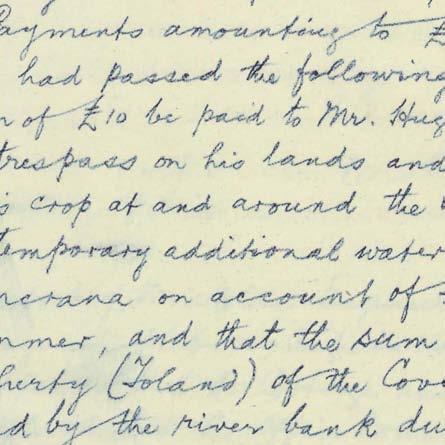 Payments amounting to £
had passed the following
of £10 be paid to Mr. Hug
trespass on his lands and
crop at and around the
temporary additional water
ncrana on account of
mmer, and that the sum
herty (Toland) of the Cove
d by the river bank du